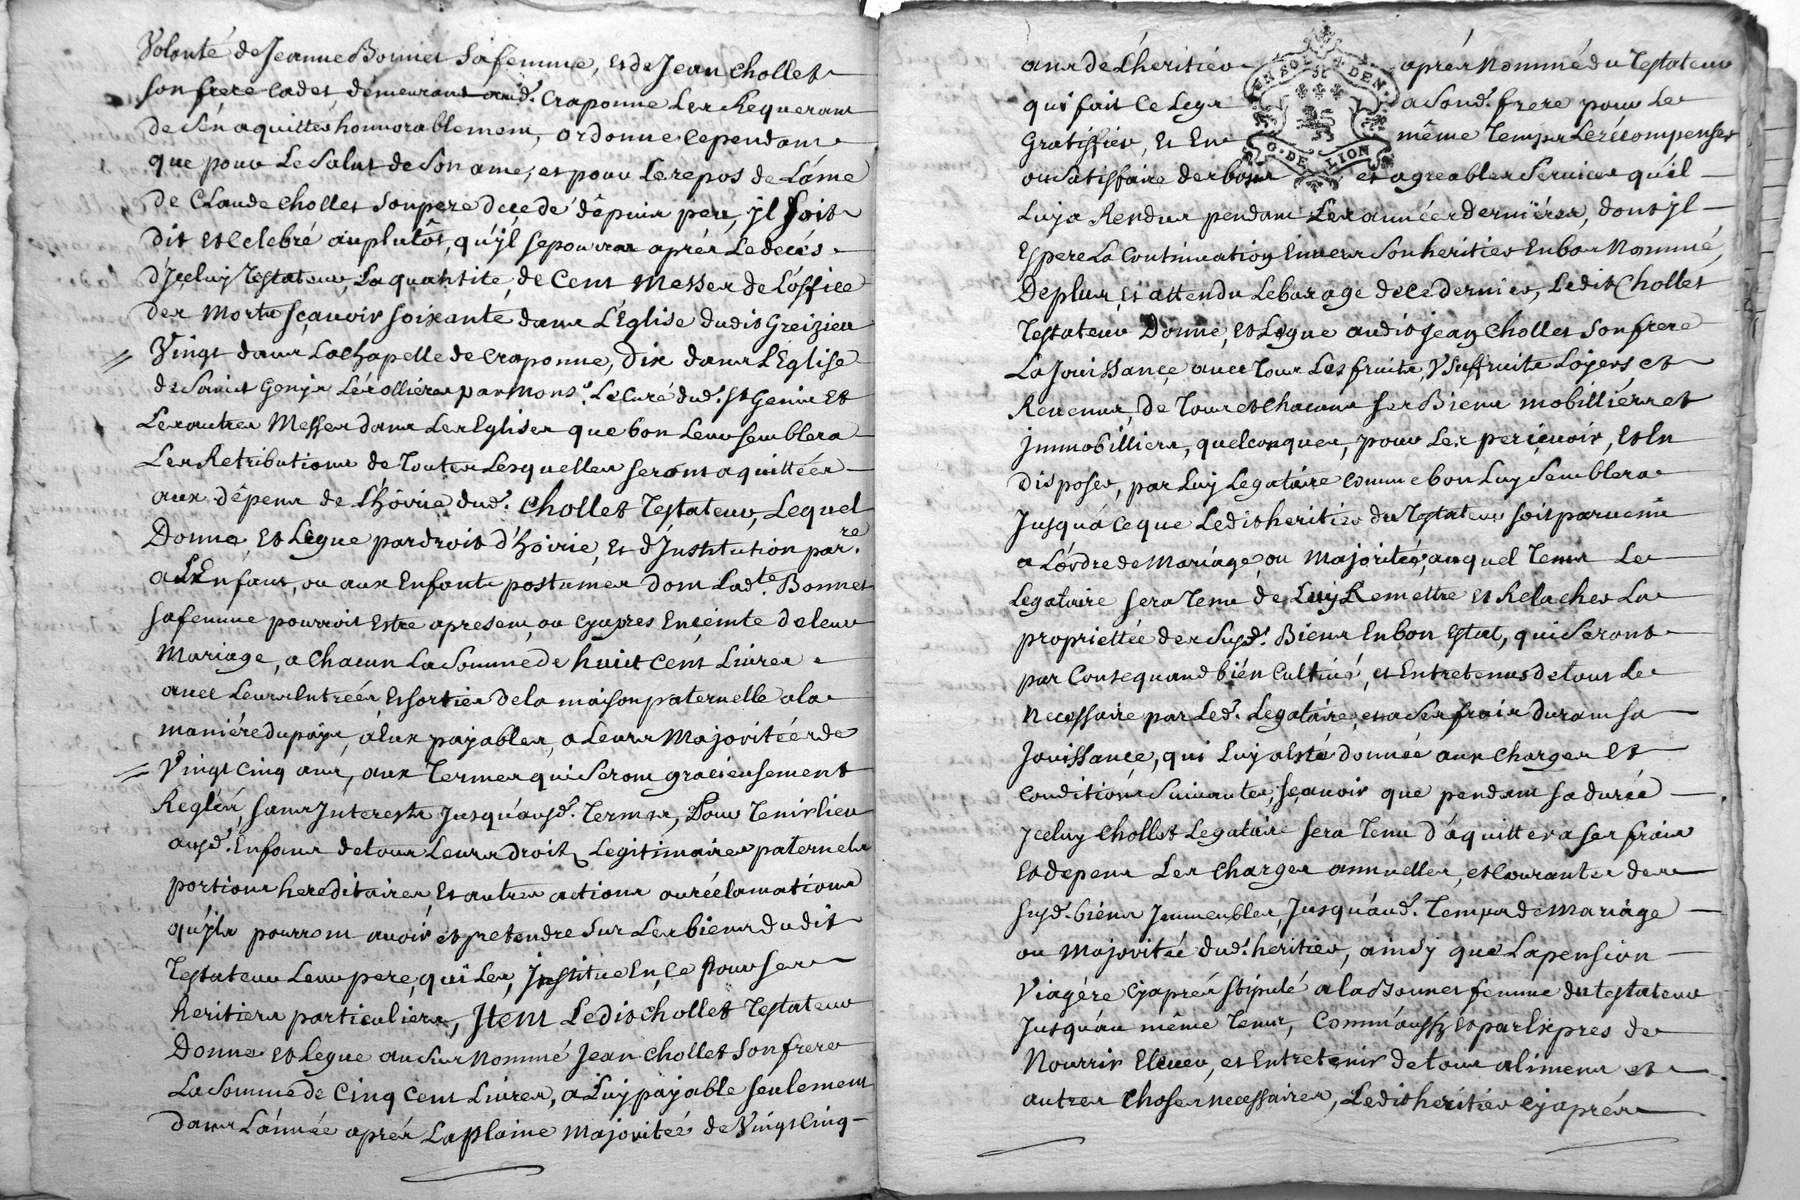 Volonté de Jeanne Bonnet sa femme, et de Jean Chollet
son frere Cadet, demeurant aud. Craponne Les Requerant
de s'en aquitter honnorablement, ordonne Cependant
que pour Le Salut de Son ame, et pour Le repos de L'âme
de Claude Chollet Son pere decedé dêpuis peu, jl soit
dit et Celebré au plutôt, qu'jl se pourra aprés Le decés
d'Jceluy Testateur, La quantité de Cent Messes de L'office
des Morts sçavoir soixante dans L'Eglise dudit Greizieu
Vingt dans La Chapelle de Craponne, Dix dans L'Eglise
de Saint Genis Lérollières par Mons.r Le Curé dud. St Genis Et
Les autres Messes dans Les Eglises que bon Leur semblera
Les Retributions de Toutes Lesquelles seront aquittées
aux dêpens de L'hôirie dud. Chollet Testateur, Lequel
Donne et Legue par droit d'hoirie, et d'Institution par.re
a L'Enfant, ou aux Enfants postumes dont Lad.te Bonnet
sa femme pourroit Estre apresent, ou cyapres Enceinte de leur
Mariage, a Chacun La Somme de huict Cent Livres
avec Leurs Entrées Et sorties de la maison paternelle a la
maniére du païs, a Eux payables, a Leurs Majoritées de
Vingt Cinq ans, aux Termes qui Seront gracieusement
Reglés, sans Interests Jusqu'ausd. Termes, Pour Tenir lieu
ausd. Enfans de tous Leurs droits Legitimaires paternels
portions hereditaires Et autres actions ou réclamations
qu'jls pourront avoir et pretendre sur Les biens dudit
Testateur Leur pere, qui Les Institue En ce Pour ses
heritiers particuliers, Jtem Ledit Chollet Testateur
Donne et Legue au Sus Nommé Jean Chollet Son frere
La Somme de Cinq Cent Livres, a Luy payable seulement
dans L'année aprés La plaine Majorité de Vingt Cinq
ans de L'heritier aprés Nommé du Testateur
qui fait Ce Legs a Sond. frere pour Le
Gratiffier, Et En même Temps Le récompenser
ou Satisfaire des bons et agreables Services qu'il
Luy a Rendus pendant Les années dernières, dont jl
Espere La Continuation Envers Son heritier En bas Nommé,
De plus, Et attendu Le bas age de Ce dernier, Ledit Chollet
Testateur Donne, et Legue audit Jean Chollet Son frere
La Jouissance avec Tous Les fruits, Vsuffruits Loyers et
Revenus, de Tous et Chacuns ses Biens mobilliers et
Jmmobilliers, quelconques, pour Les perçevoir, et En
disposer, par Luy Legataire Comme bon Luy Semblera
Jusqu'a ce que Ledit heritier du Testateur soit parvenû
a L'ordre de Mariage, ou Majorité, auquel Tems Le
Legataire sera Tenu de Luy Remettre et Relacher La
propriettée des Susd. Biens En bon Estat, qui Seront
par Consequand bien Cultivé, et Entretenus de tout Le
Necessaire par Led. Legataire et a Ses frais durant sa
Jouissance, qui Luy a Esté donnée aux Charges Et
Conditions Suivantes, sçavoir que pendant sa durée
Jceluy Chollet Legataire sera Tenu d'aquitter a Ses frais
Et depens Les Charges annuelles, et Courantes des
susd. biens Jmmeubles, Jusqu'aud. Temps de Mariage
ou Majorité dud. heritier, ainsy que La pension
Viagére Cyaprés stipulé a la Bonnet femme du testateur
Jusqu'au même Tems, Comm'aussy et par Exprés de
Nourrir Elever, et Entretenir de tous alimens et
autres Choses necessaires, Ledit heritier Cyaprés
EN SOL DEN
G. DE LION